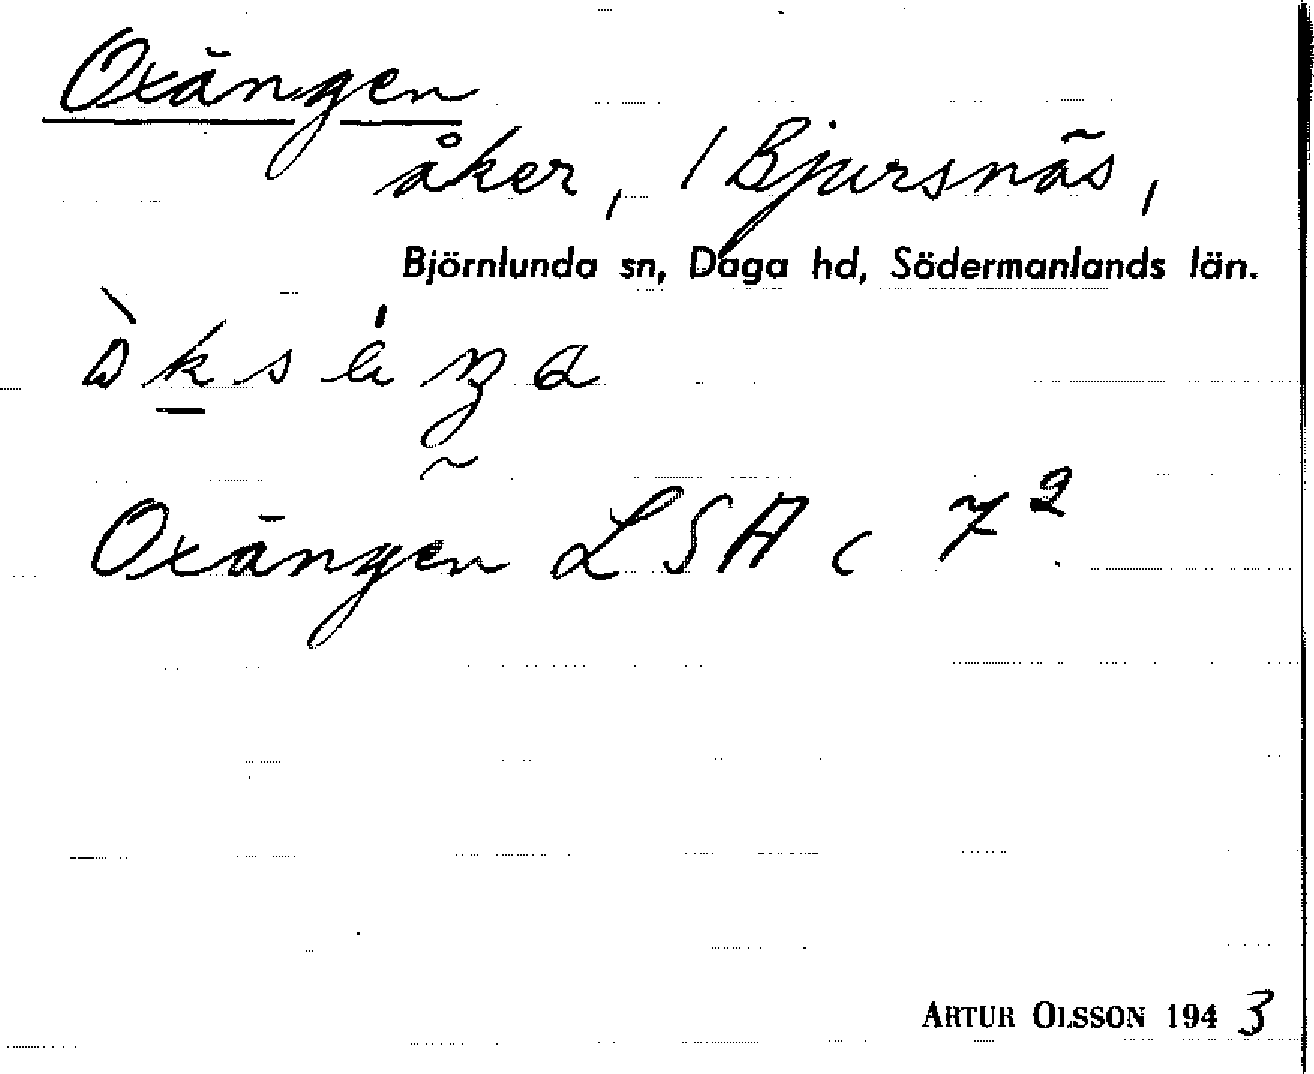 Oxängen
åker, / Bjursnäs,
Björnlunda sn, Daga hd, Södermanlands län.
Oxängen LSA C 7²
ARTUR OLSSON 1943